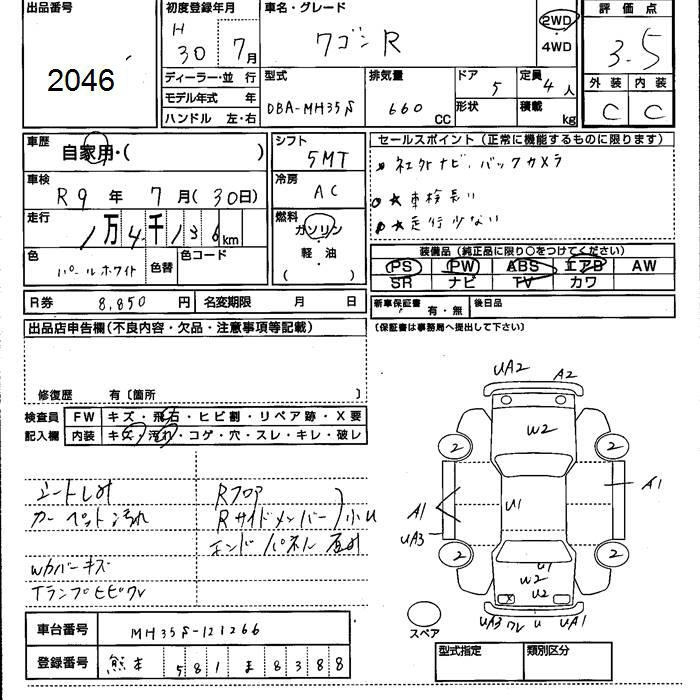 出品番号
2046
初度登録年月
H
30 7月
車名・グレード
ワゴンR
2WD
・
4WD
評価点
3.5
外装 内装
C C
ディーラー・並 行
モデル年式 年
ハンドル 左・右
型式
DBA-MH35S
排気量
660
CC
ドア
5
形状
定員
4人
積載
kg
車歴
自家用・( )
車検
R9年 7月(30日)
走行
1万4千136km
色
パールホワイト
色替
色コード
シフト
5MT
冷房
AC
燃料
ガソリン
・
軽・油
( )
セールスポイント(正常に機能するものに限ります)
社外ナビ、バックカメラ
★車検長い
★走行少ない
装備品(純正品に限り○をつけてください)
PS PW ABS エアB AW
SR ナビ TV カワ
R券 8,850円
名変期限 月 日
新車保証書
有・無
後日品
(保証書は事務局へ提出して下さい)
出品店申告欄(不良内容・欠品・注意事項等記載)
修復歴 有〔箇所 〕
検査員
記入欄
FW キズ・飛石・ヒビ割・リペア跡・X要
内装 キズ・汚れ・コゲ・穴・スレ・キレ・破レ
シートしみ
カーペット汚れ
Wカバーキズ
Tランプヒビワレ
Rフロア
Rサイドメンバー 小U
エンドパネル
UA2 A2
W2
2 2
A1 U1 A1
UA3
2 2
U1
W2
U2
X
UA3 ワレ U UA1
スペア
車台番号 MH35S-121266
登録番号 熊本 581 ま 8388
型式指定 類別区分